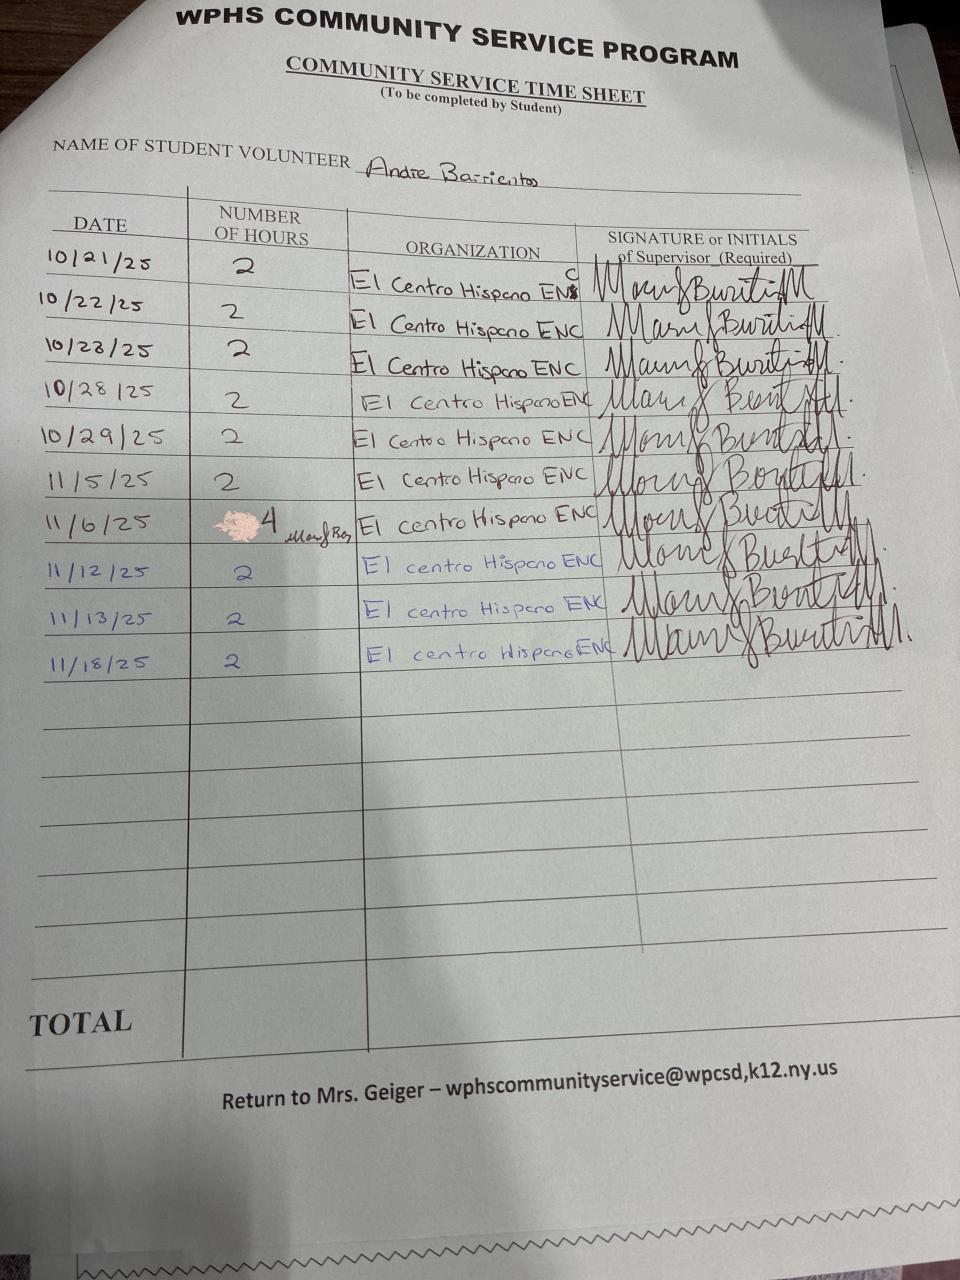 WPHS COMMUNITY SERVICE PROGRAM
COMMUNITY SERVICE TIME SHEET
(To be completed by Student)
NAME OF STUDENT VOLUNTEER Andre Barrientos
DATE NUMBER OF HOURS ORGANIZATION SIGNATURE or INITIALS of Supervisor (Required)
10/21/25 2 El Centro Hispano ENC
10/22/25 2 El Centro Hispano ENC
10/23/25 2 El Centro Hispano ENC
10/28/25 2 El Centro Hispano ENC
10/29/25 2 El Centro Hispano ENC
11/5/25 2 El Centro Hispano ENC
11/6/25 4 El Centro Hispano ENC
11/12/25 2 El centro Hispano ENC
11/13/25 2 El centro Hispano ENC
11/18/25 2 El centro Hispano ENC
TOTAL
Return to Mrs. Geiger – wphscommunityservice@wpcsd,k12.ny.us